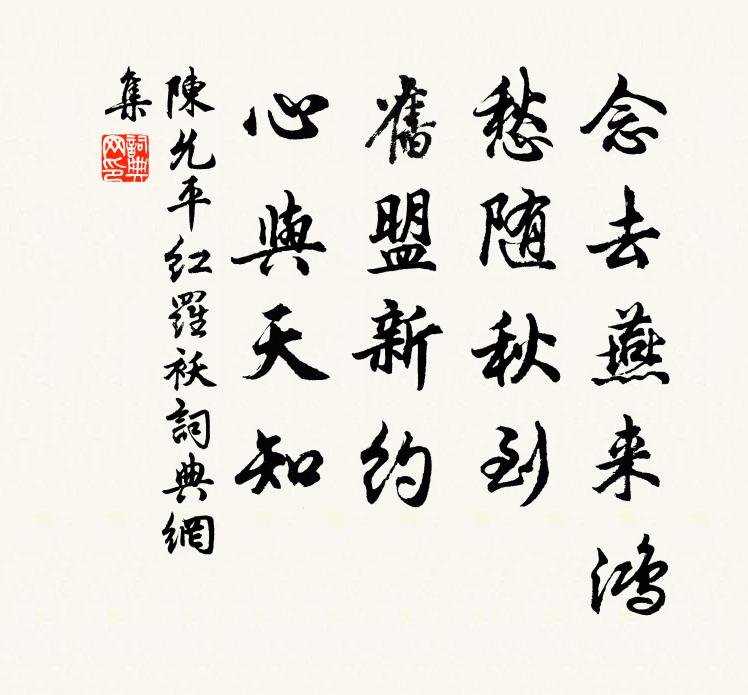 念去燕来鸿
愁随秋到
舊盟新约
心與天知
陳允平红羅袄詞典網
集
詞典網印